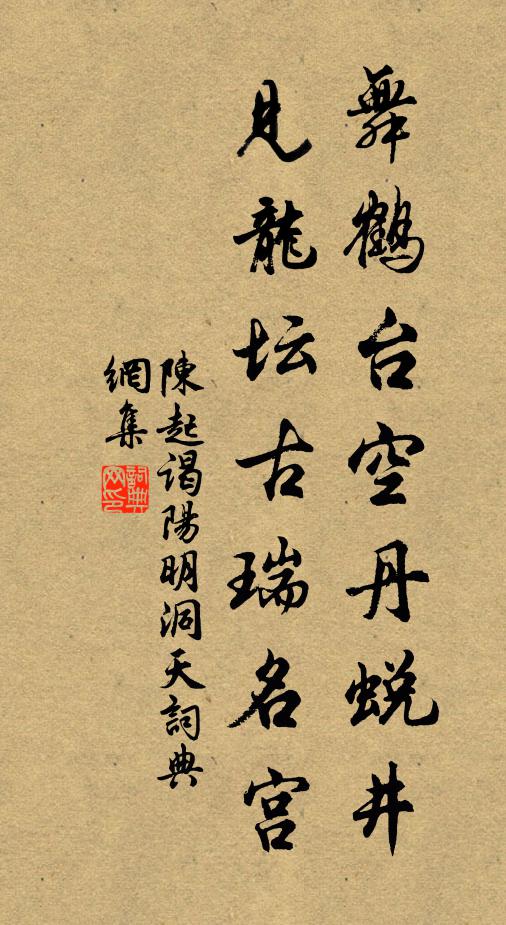 舞鶴台空丹蜕井
見龍坛古瑞名宫
陳起谒陽明洞天詞典
網集
詞典
网印